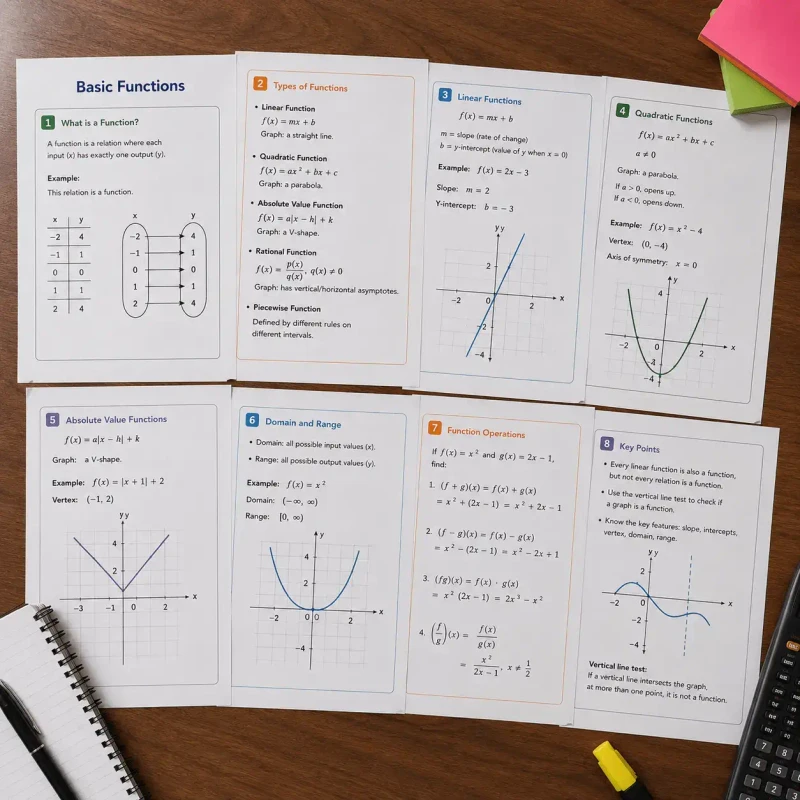 Basic Functions
1 What is a Function?
A function is a relation where each
input (x) has exactly one output (y).
Example:
This relation is a function.
x y
−2 4
−1 1
0 0
1 1
2 4
x y
−2 4
−1 1
0 0
1 1
2 4
2 Types of Functions
• Linear Function
f(x) = mx + b
Graph: a straight line.
• Quadratic Function
f(x) = ax² + bx + c
Graph: a parabola.
• Absolute Value Function
f(x) = a|x − h| + k
Graph: a V-shape.
• Rational Function
f(x) = p(x)/q(x), q(x) ≠ 0
Graph: has vertical/horizontal asymptotes.
• Piecewise Function
Defined by different rules on
different intervals.
3 Linear Functions
f(x) = mx + b
m = slope (rate of change)
b = y-intercept (value of y when x = 0)
Example: f(x) = 2x − 3
Slope: m = 2
Y-intercept: b = − 3
y y
2
−2 0 2 x
−2
−4
4 Quadratic Functions
f(x) = ax² + bx + c
a ≠ 0
Graph: a parabola.
If a > 0, opens up.
If a < 0, opens down.
Example: f(x) = x² − 4
Vertex: (0, −4)
Axis of symmetry: x = 0
y
4
−2 0 2 x
−4
5 Absolute Value Functions
f(x) = a|x − h| + k
Graph: a V-shape.
Example: f(x) = |x + 1| + 2
Vertex: (−1, 2)
y y
4
2
−3 −1 0 2 x
6 Domain and Range
• Domain: all possible input values (x).
• Range: all possible output values (y).
Example: f(x) = x²
Domain: (−∞, ∞)
Range: [0, ∞)
y
4
2
−2 0 0 2 x
−4
7 Function Operations
If f(x) = x² and g(x) = 2x − 1,
find:
1. (f + g)(x) = f(x) + g(x)
= x² + (2x − 1) = x² + 2x − 1
2. (f − g)(x) = f(x) − g(x)
= x² − (2x − 1) = x² − 2x + 1
3. (fg)(x) = f(x) · g(x)
= x² (2x − 1) = 2x³ − x²
4. (f/g)(x) = f(x)/g(x)
= x²/(2x − 1), x ≠ 1/2
8 Key Points
• Every linear function is also a function,
but not every relation is a function.
• Use the vertical line test to check if
a graph is a function.
• Know the key features: slope, intercepts,
vertex, domain, range.
y y
2
−2 0 2 x
−2
−4
Vertical line test:
If a vertical line intersects the graph,
at more than one point, it is not a function.
7 8
4 5
1 2